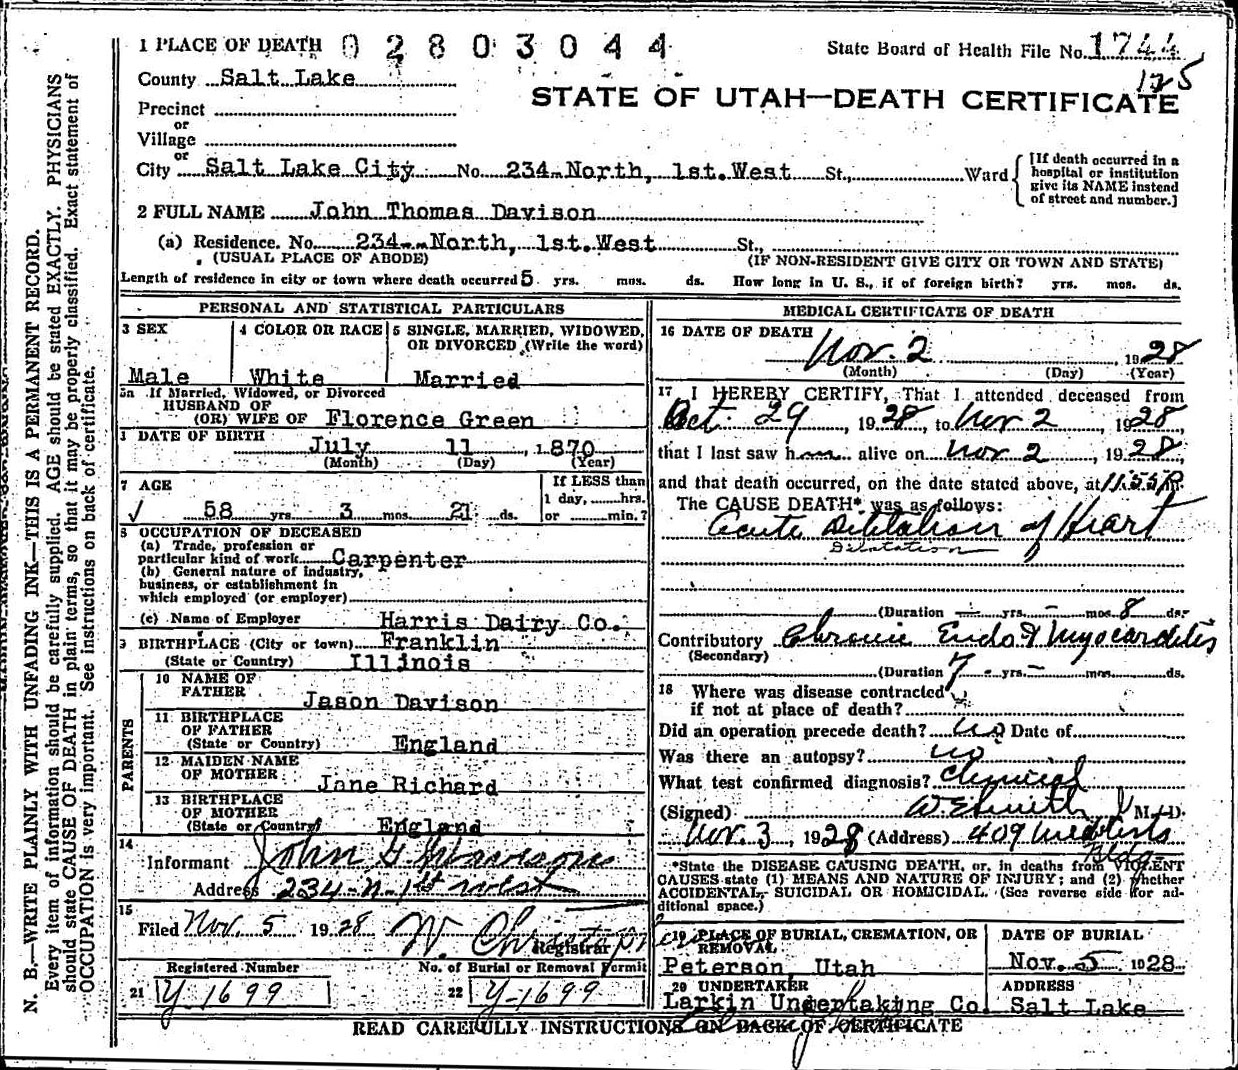 1 PLACE OF DEATH 02803044 State Board of Health File No. 1744
125
County Salt Lake
STATE OF UTAH—DEATH CERTIFICATE
Precinct
or
Village
or
City Salt Lake City No. 234 North, 1st. West St., Ward
[If death occurred in a
hospital or institution
give its NAME instend
of street and number.]
2 FULL NAME John Thomas Davison
(a) Residence. No. 234 North, 1st. West St.,
(USUAL PLACE OF ABODE) (IF NON-RESIDENT GIVE CITY OR TOWN AND STATE)
Length of residence in city or town where death occurred 5 yrs. mos. ds. How long in U. S., if of foreign birth? yrs. mos. ds.
PERSONAL AND STATISTICAL PARTICULARS
3 SEX
Male
4 COLOR OR RACE
White
5 SINGLE, MARRIED, WIDOWED,
OR DIVORCED (Write the word)
Married
5a If Married, Widowed, or Divorced
HUSBAND OF
(OR) WIFE OF Florence Green
DATE OF BIRTH
July 11, 1870
(Month) (Day) (Year)
7 AGE
58 yrs. 3 mos. 21 ds.
If LESS than
1 day, hrs.
or min.?
8 OCCUPATION OF DECEASED
(a) Trade, profession or
particular kind of work Carpenter
(b) General nature of industry,
business, or establishment in
which employed (or employer)
(c) Name of Employer Harris Dairy Co.
9 BIRTHPLACE (City or town) Franklin
(State or Country) Illinois
PARENTS
10 NAME OF
FATHER Jason Davison
11 BIRTHPLACE
OF FATHER
(State or Country) England
12 MAIDEN NAME
OF MOTHER Jane Richard
13 BIRTHPLACE
OF MOTHER
(State or Country) England
14
Informant John G Davison
Address 234-N-1st West
15
Filed Nov. 5 1928
Registrar
Registered Number
21 Y-1699
No. of Burial or Removal Permit
22 Y-1699
MEDICAL CERTIFICATE OF DEATH
16 DATE OF DEATH
Nov. 2 1928
(Month) (Day) (Year)
17 I HEREBY CERTIFY, That I attended deceased from
Oct 29, 1928, to Nov 2 1928
that I last saw him alive on Nov 2, 1928,
and that death occurred, on the date stated above, at 11:55 P m.
The CAUSE DEATH* was as follows:
Acute Dilitation of Heart
Dilatation
(Duration — yrs. — mos. 8 ds.
Contributory Chronic Endo & Myocarditis
(Secondary)
(Duration 7 yrs. — mos. ds.
18 Where was disease contracted
if not at place of death?
Did an operation precede death? no Date of
Was there an autopsy? no
What test confirmed diagnosis? Clinical
(Signed) M. D.
Nov. 3, 1928 (Address) 409
Bldg
*State the DISEASE CAUSING DEATH, or, in deaths from VIOLENT
CAUSES state (1) MEANS AND NATURE OF INJURY; and (2) whether
ACCIDENTAL, SUICIDAL OR HOMICIDAL. (See reverse side for ad-
ditional space.)
19 PLACE OF BURIAL, CREMATION, OR
REMOVAL
Peterson, Utah
DATE OF BURIAL
Nov. 5 1928
20 UNDERTAKER
Larkin Undertaking Co.
ADDRESS
Salt Lake
READ CAREFULLY INSTRUCTIONS ON BACK OF CERTIFICATE
N. B.—WRITE PLAINLY WITH UNFADING INK—THIS IS A PERMANENT RECORD.
Every item of information should be carefully supplied. AGE should be stated EXACTLY. PHYSICIANS
should state CAUSE OF DEATH in plain terms, so that it may be properly classified. Exact statement of
OCCUPATION is very important. See instructions on back of certificate.